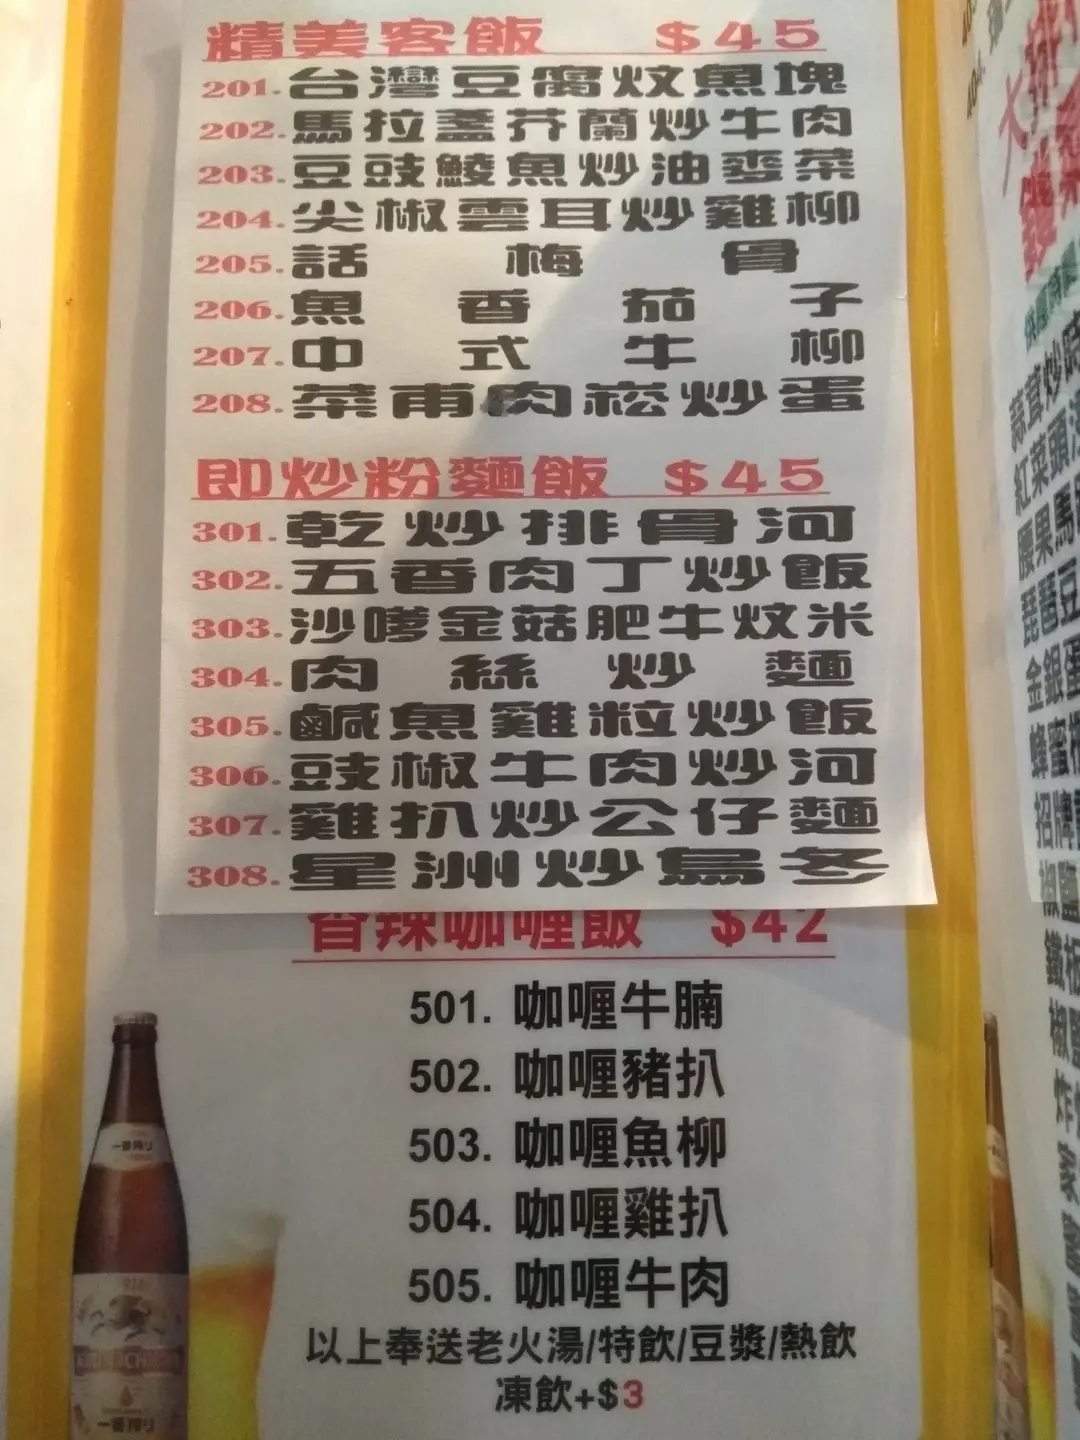 精美客飯 $45
201.台灣豆腐炆魚塊
202.馬拉盞芥蘭炒牛肉
203.豆豉鯪魚炒油麥菜
204.尖椒雲耳炒雞柳
205.話梅骨
206.魚香茄子
207.中式牛柳
208.菜甫肉崧炒蛋
即炒粉麵飯 $45
301.乾炒排骨河
302.五香肉丁炒飯
303.沙嗲金菇肥牛炆米
304.肉絲炒麵
305.鹹魚雞粒炒飯
306.豉椒牛肉炒河
307.雞扒炒公仔麵
308.星洲炒烏冬
香辣咖喱飯 $42
501. 咖喱牛腩
502. 咖喱豬扒
503. 咖喱魚柳
504. 咖喱雞扒
505. 咖喱牛肉
以上奉送老火湯/特飲/豆漿/熱飲
凍飲+$3
一番搾り
一番搾り